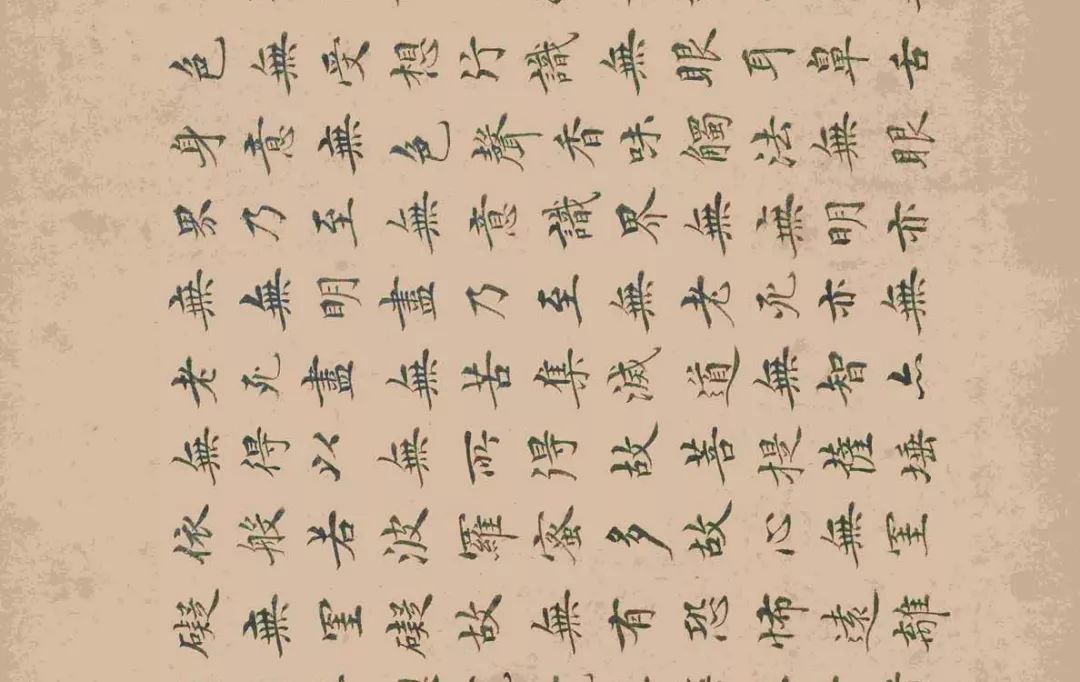 色無受想行識無眼耳鼻舌
身意無色聲香味觸法無眼
界乃至無意識界無無明亦
無無明盡乃至無老死亦無
老死盡無苦集滅道無智亦
無得以無所得故菩提薩埵
依般若波羅蜜多故心無罣
礙無罣礙故無有恐怖遠離